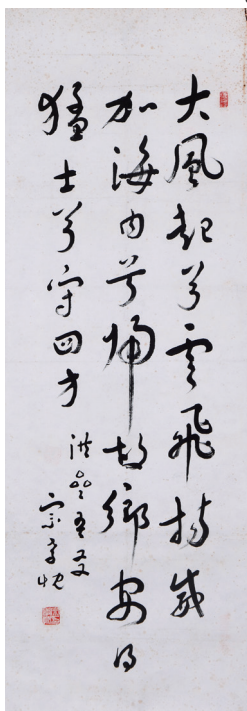 大風起兮雲飛揚威
加海内兮歸故鄉安得
猛士兮守四方
洪吾友
宗孝忱